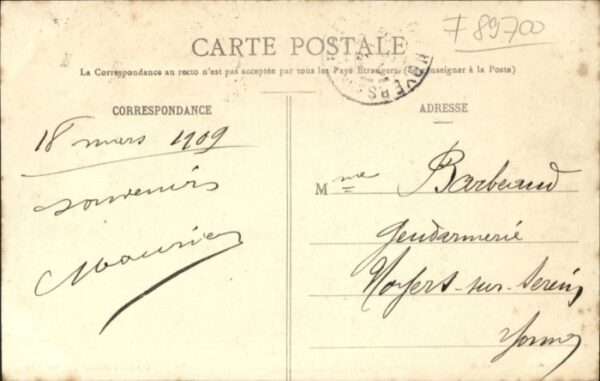 F 89700
CARTE POSTALE
La Correspondance au recto n'est pas acceptée par tous les Pays Étrangers. (Se renseigner à la Poste)
CORRESPONDANCE
ADRESSE
18 mars 1909
souvenirs
Maurice
Mme Barbeaud
Gendarmerie
Noyers-sur-Serein
Yonne